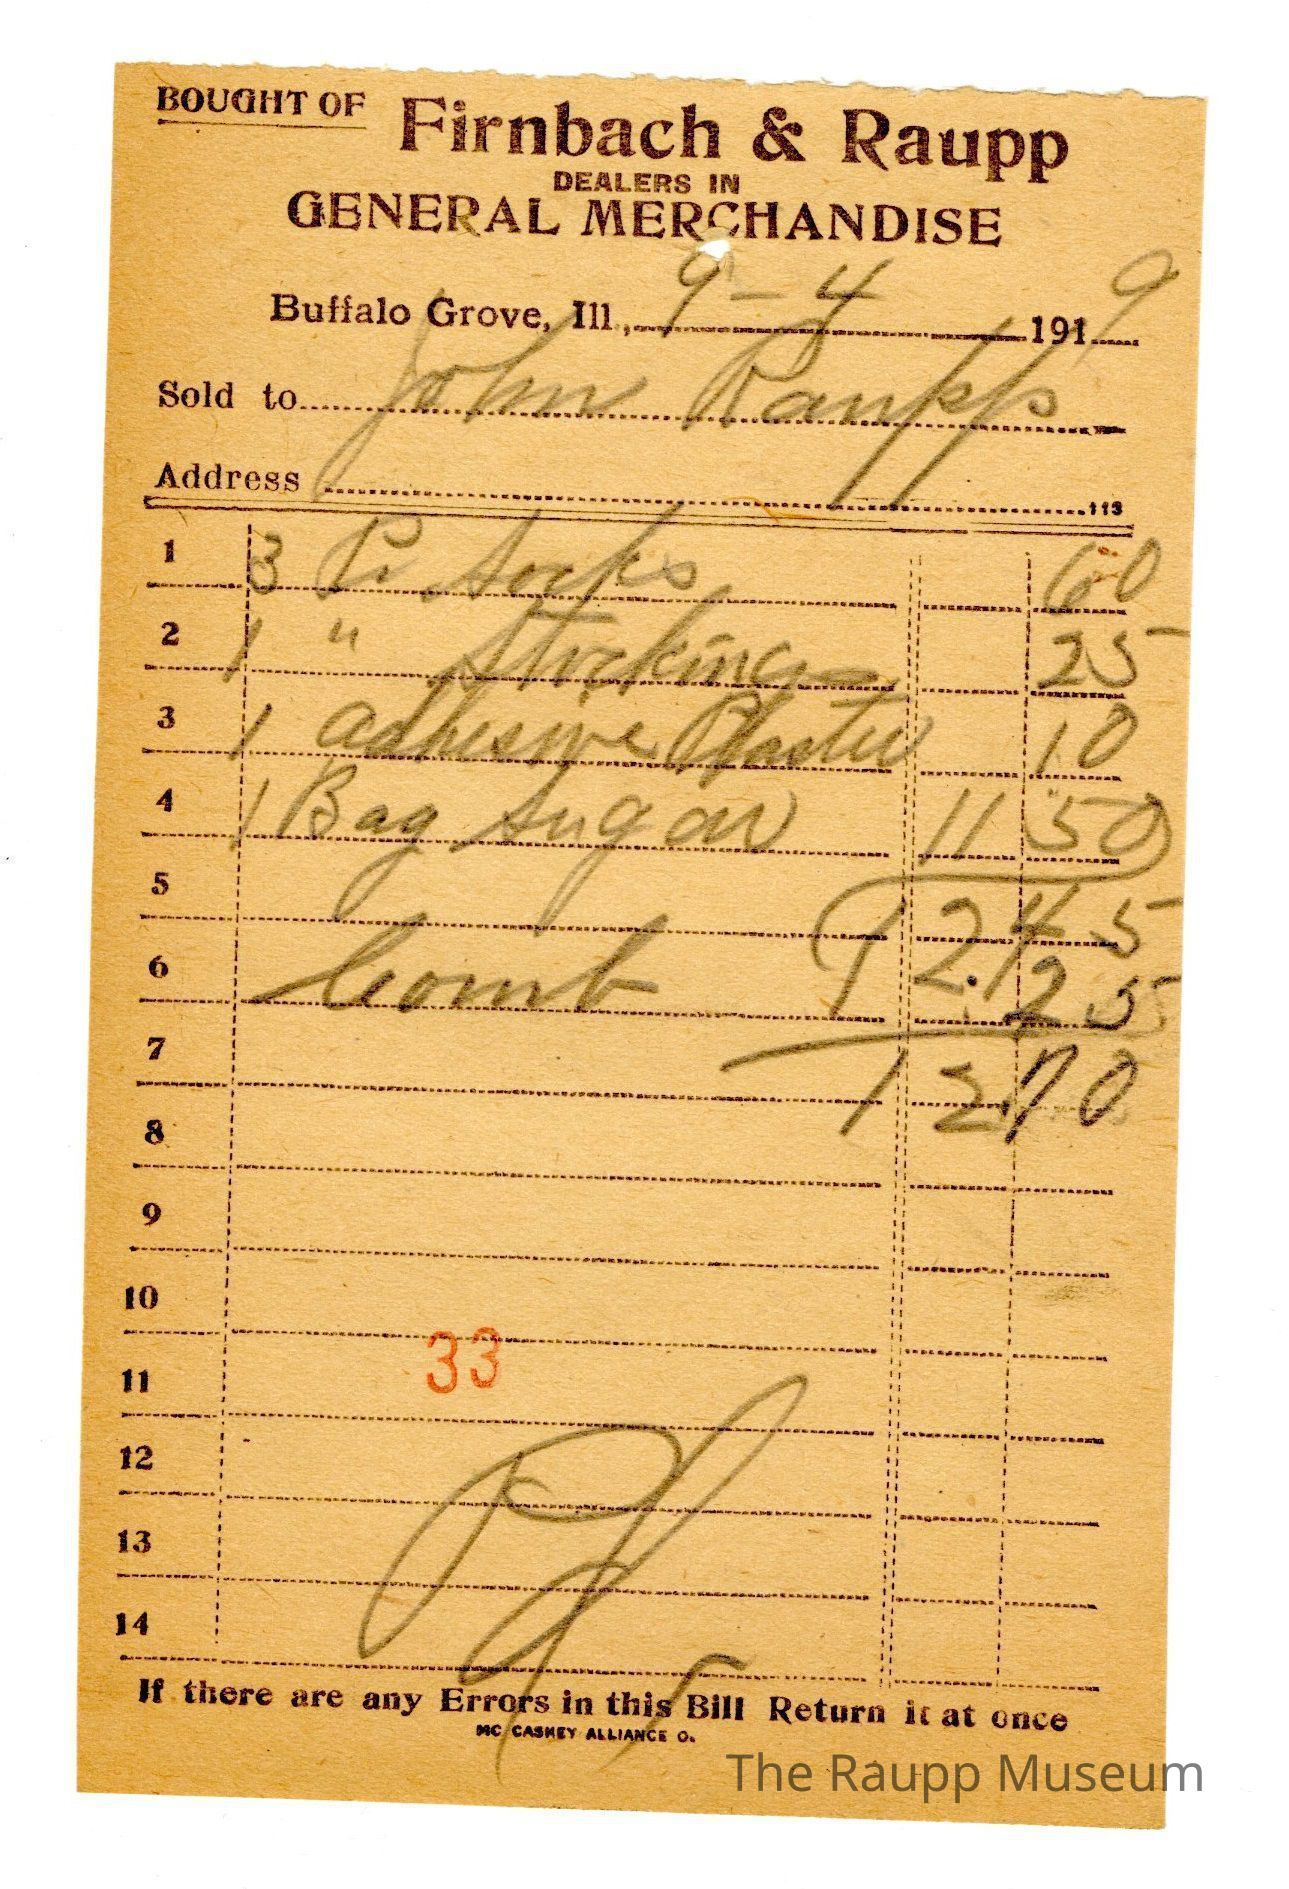 BOUGHT OF Firnbach & Raupp
DEALERS IN
GENERAL MERCHANDISE
Buffalo Grove, Ill., 9-4 1919
Sold to John Raupp
Address
113
1 3 Pr Socks 60
2 1 " Stockings 25
3 1 Adhesive Plaster 10
4 1 Bag Sugar 11 50
5 12.45
6 Comb 25
7 12.70
8
9
10
33
11
12
13
14
If there are any Errors in this Bill Return it at once
MC CASKEY ALLIANCE O.
The Raupp Museum